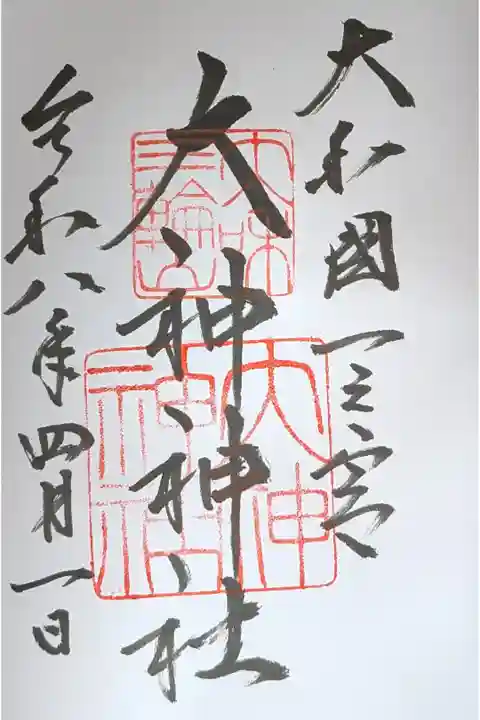 大和國一之宮
大神神社
令和八年四月一日
大和
三輪山
大神
神社